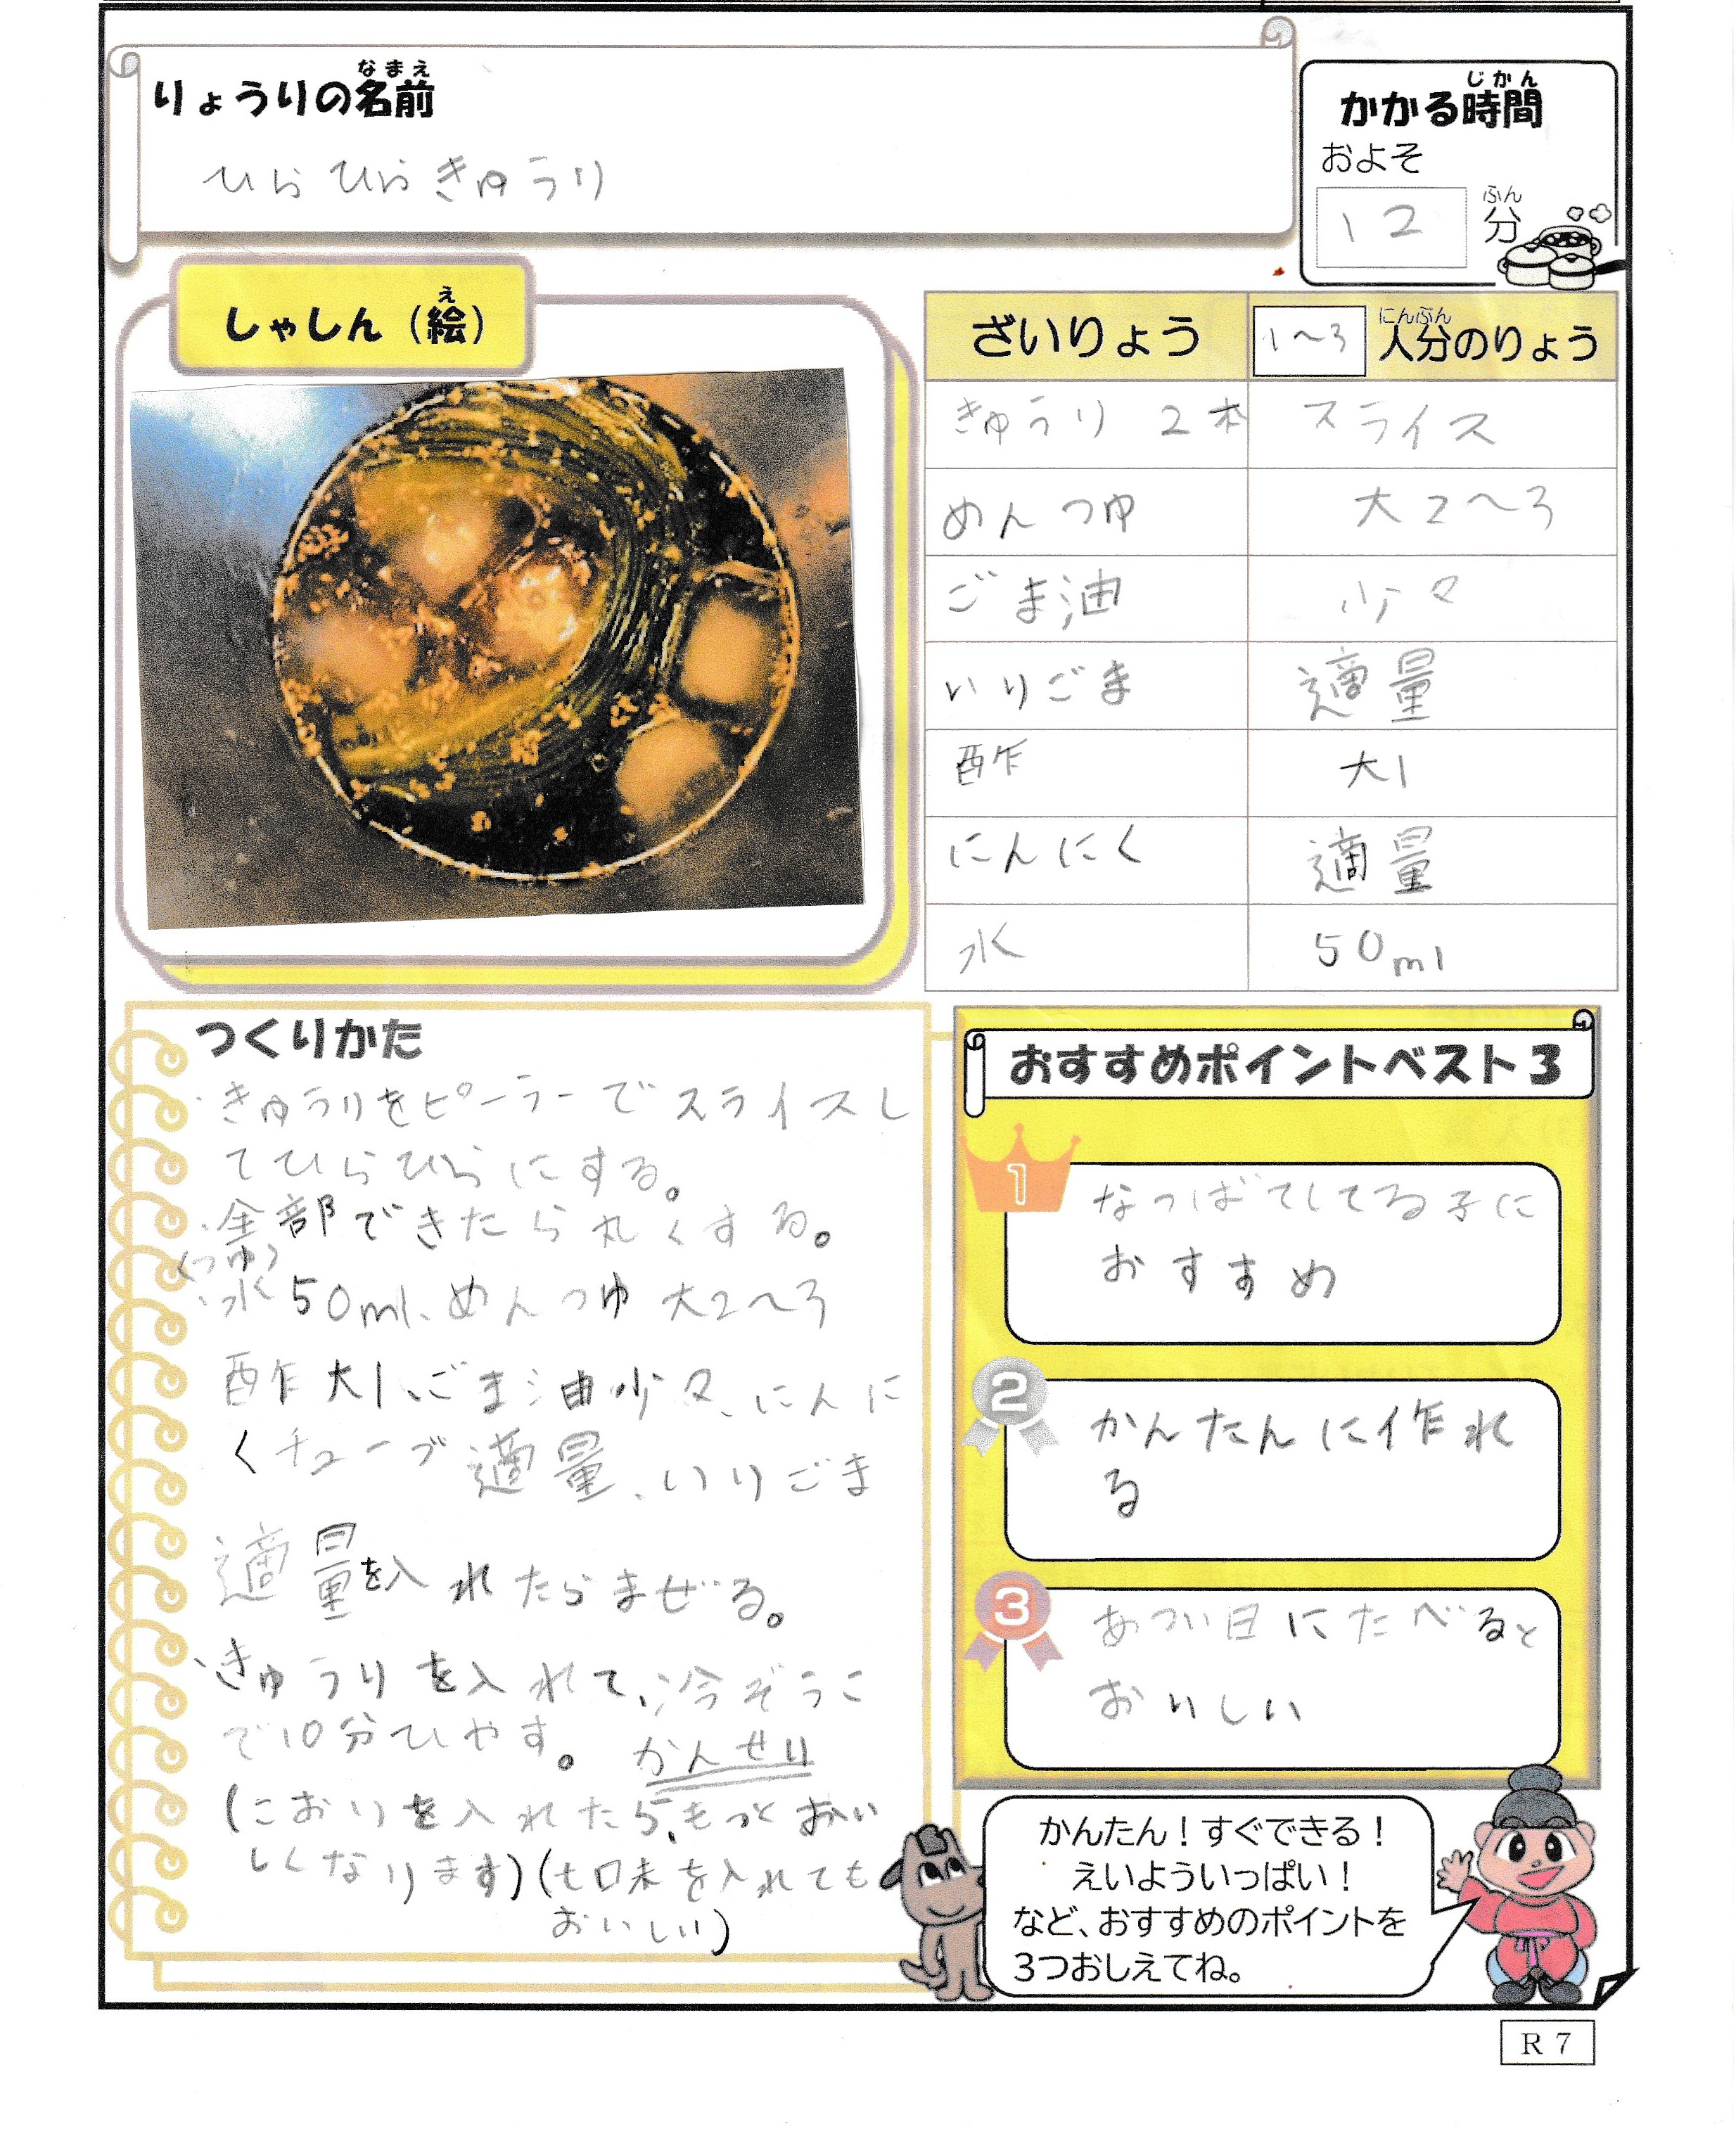 りょうりの名前
なまえ
ひらひらきゅうり
かかる時間
じかん
およそ
12
分
ふん
しゃしん（絵）
え
ざいりょう
1〜3
人分のりょう
にんぶん
きゅうり 2本 スライス
めんつゆ 大2〜3
ごま油 少々
いりごま 適量
酢 大1
にんにく 適量
水 50ml
つくりかた
・きゅうりをピーラーでスライスし
てひらひらにする。
・全部できたら丸くする。
(つゆ)
・水50ml、めんつゆ大2〜3
酢大1、ごま油少々、にんに
くチューブ適量、いりごま
適量を入れたらまぜる。
・きゅうりを入れて、冷ぞうこ
で10分ひやす。 かんせい
(こおりを入れたら、もっとおい
しくなります)(七口未を入れても
おいしい)
おすすめポイントベスト3
1
なつばてしてる子に
おすすめ
2
かんたんに作れ
る
3
あつい日にたべると
おいしい
かんたん！すぐできる！
えいよういっぱい！
など、おすすめのポイントを
3つおしえてね。
R7